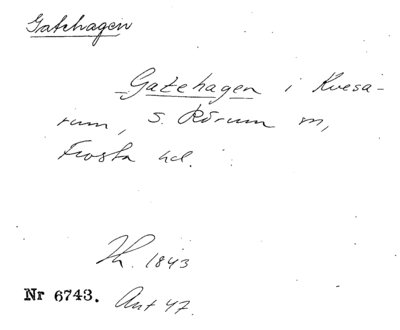 Gatehagen
Gatehagen i Kvesa-
rum, S. Rörum sn,
Frosta hd.
1843
Nr 6743. Ant 47.